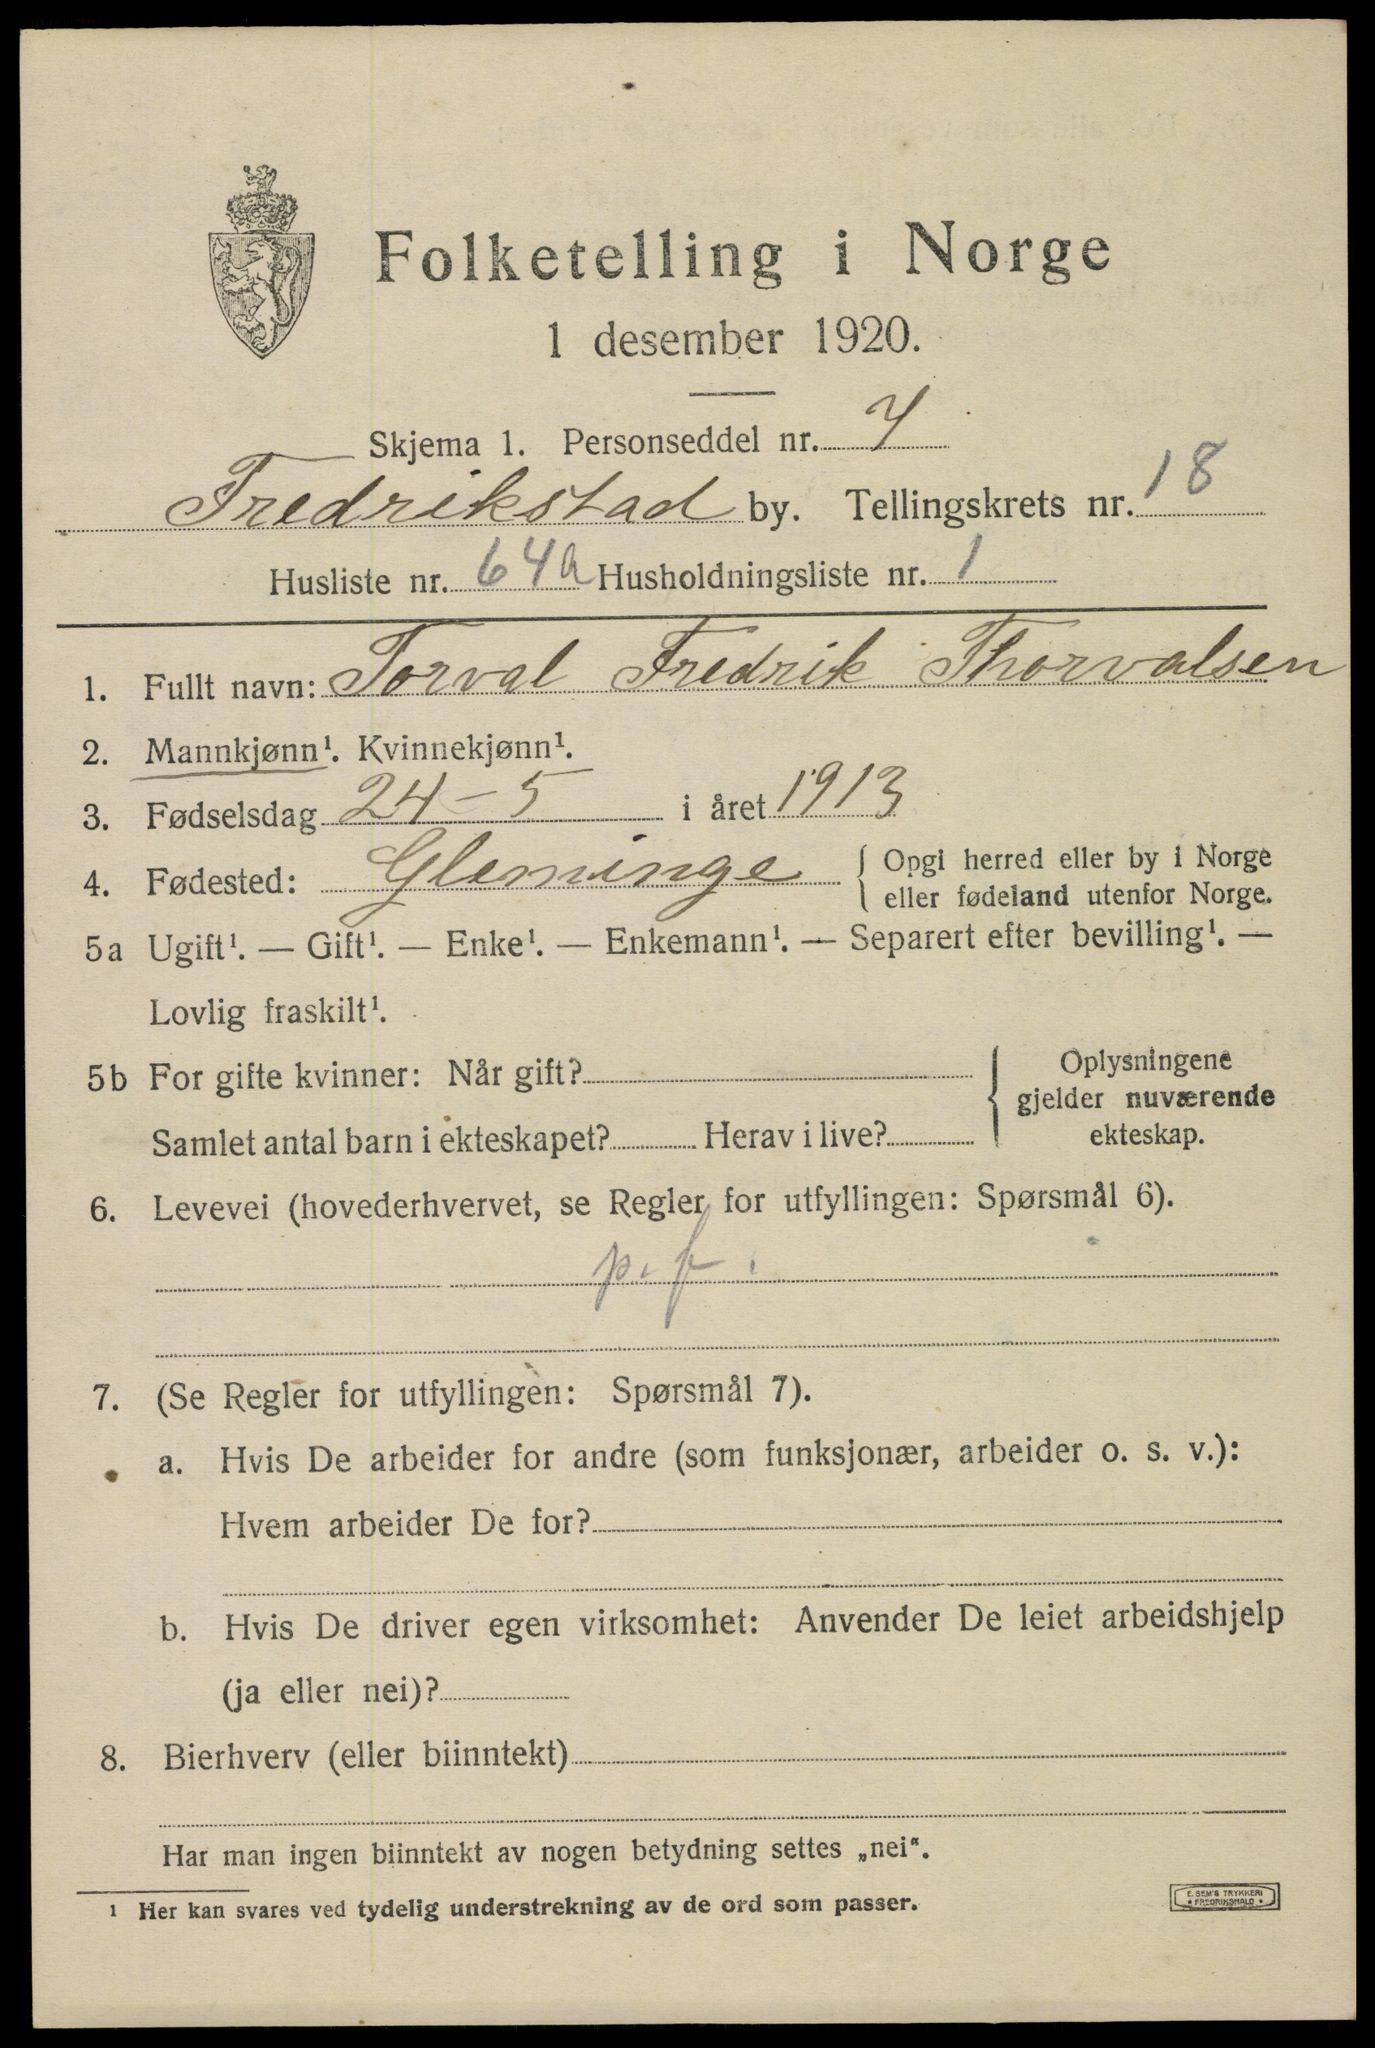 Folketelling i Norge
1 desember 1920.
Skjema 1. Personseddel nr. 4
Fredrikstad by. Tellingskrets nr. 18
Husliste nr. 64a Husholdningsliste nr. 1
1. Fullt navn: Torval Fredrik Thorvalsen
2. Mannkjønn¹. Kvinnekjønn¹.
3. Fødselsdag 24 - 5 i året 1913
4. Fødested: Gleminge { Opgi herred eller by i Norge
eller fødeland utenfor Norge.
5a Ugift¹. — Gift¹. — Enke¹. — Enkemann¹. — Separert efter bevilling¹. —
Lovlig fraskilt¹.
5b For gifte kvinner: Når gift?
Samlet antal barn i ekteskapet? Herav i live?
Oplysningene
gjelder nuværende
ekteskap.
6. Levevei (hovederhvervet, se Regler for utfyllingen: Spørsmål 6).
p. f.
7. (Se Regler for utfyllingen: Spørsmål 7).
a. Hvis De arbeider for andre (som funksjonær, arbeider o. s. v.):
Hvem arbeider De for?
b. Hvis De driver egen virksomhet: Anvender De leiet arbeidshjelp
(ja eller nei)?
8. Bierhverv (eller biinntekt)
Har man ingen biinntekt av nogen betydning settes „nei“.
¹ Her kan svares ved tydelig understrekning av de ord som passer.
E. SEM'S TRYKKERI
* FREDRIKSHALD *